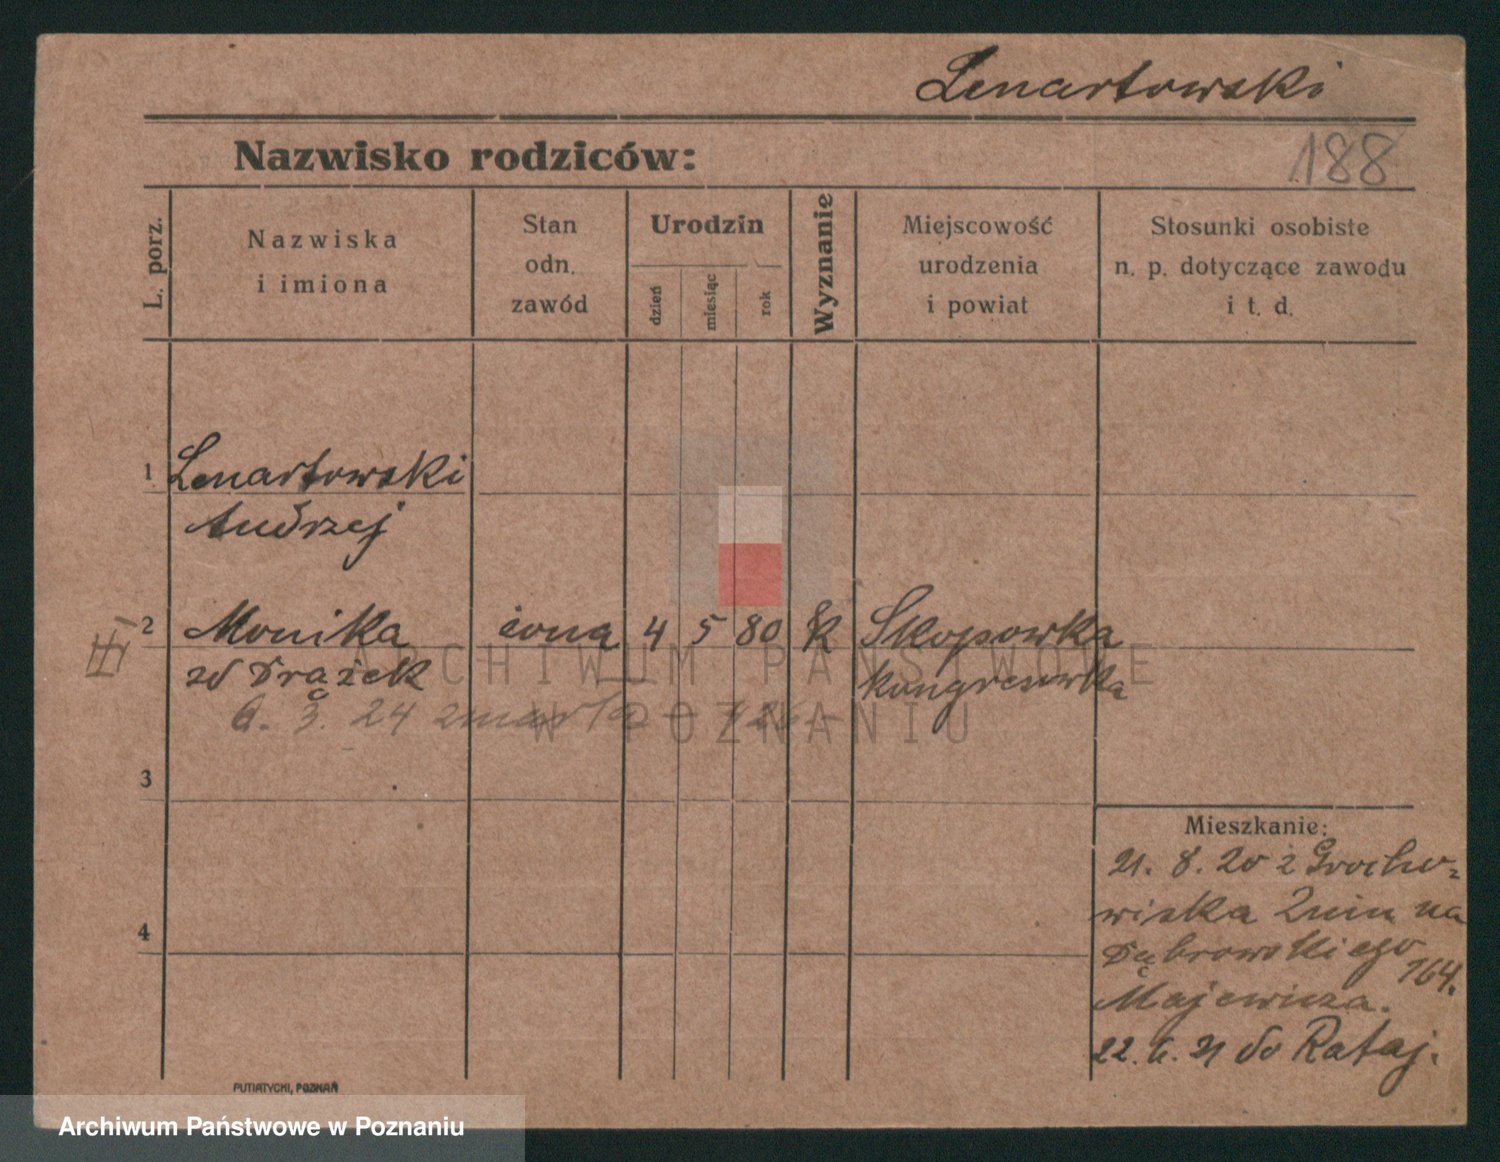 Lenartowski
Nazwisko rodziców:
188
L. porz.
Nazwiska
i imiona
Stan
odn.
zawód
Urodzin
dzień
miesiąc
rok
Wyznanie
Miejscowość
urodzenia
i powiat
Stosunki osobiste
n. p. dotyczące zawodu
i t. d.
1 Lenartowski
Andrzej
2 Monika żona 4 5 80 k Skopowka
zd Drążek kongresowka
6. 3. 24 zmarła
3
4
Mieszkanie:
21. 8. 20 z Grocho-
wiska Żnin na
Dąbrowskiego
164.
Majewicza.
22. 6. 21 do Rataj.
PUTIATYCKI, POZNAŃ
ARCHIWUM PAŃSTWOWE
W POZNANIU
Archiwum Państwowe w Poznaniu